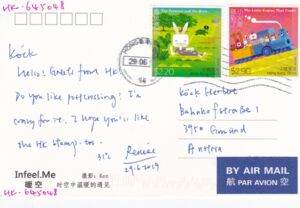 HK-645048
Köck
Hello! Greets from HK.
Do you like postcrossing? I'm
crazy for it. I hope you'll like
the HK stamp too.
31°C
Renée
29.6.2019
29 06
The Tortoise and the Hare
$2.20
The Little Engine That Could
$2.90
Köck Herbert
Bahnhofstraße 1
3950 Gmünd
Austria
Infeel.Me
暖空
摄影:Ken
时空中温暖的遇见
HK-645048
BY AIR MAIL
航空 PAR AVION